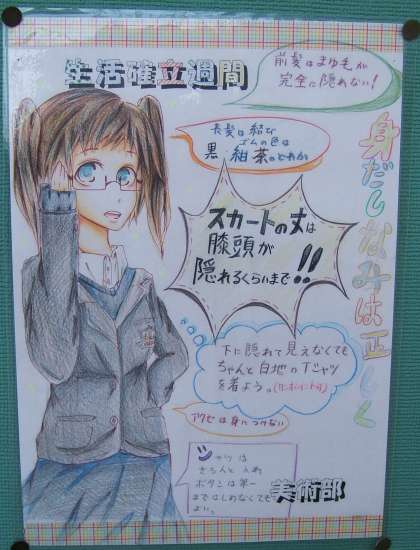 生活確立週間
前髪はまゆ毛が
完全に隠れない!
長髪は結び
ゴムの色は
黒・紺・茶のどれか
身だしなみは正しく
スカートの丈は
膝頭が
隠れるくらいまで!!
下に隠れて見えなくても
ちゃんと白地のTシャツ
を着よう。(ワンポイント可)
アクセは身につけない
シャツは
きちんと入れ
ボタンは第一
まではしめなくても
よい。
美術部